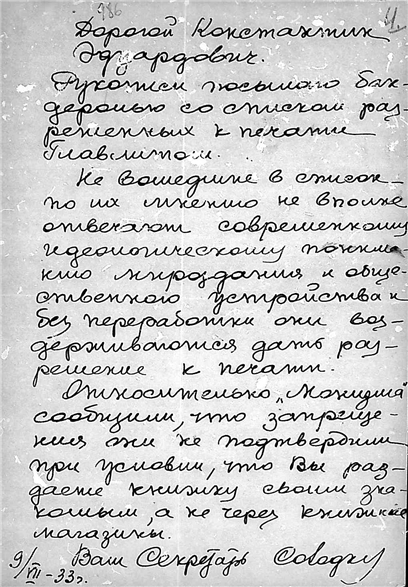 786
4
Дорогой Константин
Эдуардович.
Рукописи посылаю бан-
деролью со списком раз-
решенных к печати
Главлитом.
Не вошедшие в список -
по их мнению не вполне
отвечают современному
идеологическому понима-
нию мироздания и обще-
ственного устройства и
без переработки они воз-
держиваются дать раз-
решение к печати.
Относительно „Монизма"
сообщили, что запреще-
ния они не подтвердили
при условии, что Вы раз-
даете книжку своим зна-
комым, а не через книжные
магазины.
Ваш Секретарь
9/VII-33г.